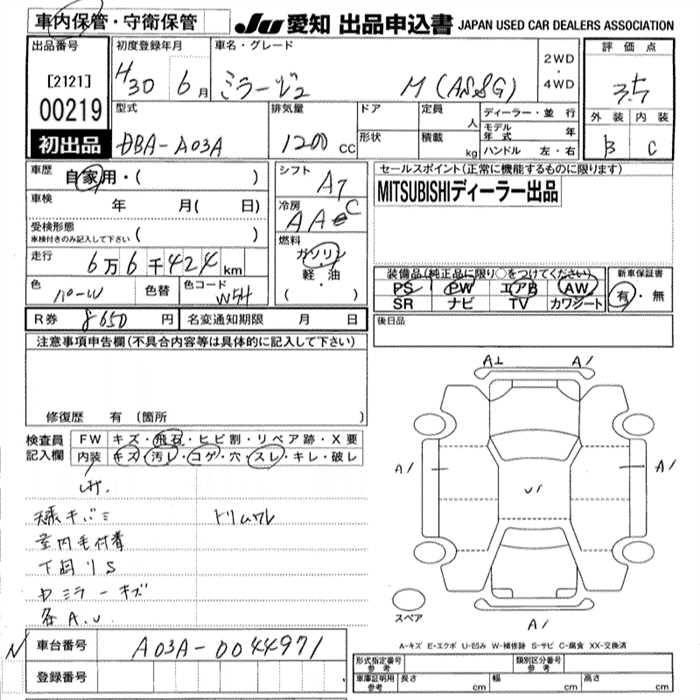 車内保管・守衛保管
JU 愛知 出品申込書 JAPAN USED CAR DEALERS ASSOCIATION
出品番号
[2121]
00219
初出品
初度登録年月
H30 6月
車名・グレード
ミラージュ M(AS&G)
2WD
・
4WD
評価点
3.5
外装 内装
B C
型式
DBA-A03A
排気量
1200 cc
ドア
形状
定員
人
積載
kg
ディーラー・並行
モデル年式 年
ハンドル 左・右
車歴
自家用・( )
車検 年 月( 日)
受検形態
車検付きのみ記入して下さい ( )
走行
6万6千424km
色
パール
色替
色コード
W54
R券 8650 円
名変通知期限 月 日
シフト
AT
冷房
AAC
燃料
ガソリン
・
軽・油
( )
セールスポイント(正常に機能するものに限ります)
MITSUBISHIディーラー出品
装備品(純正品に限り○をつけてください)
PS PW エアB AW
SR ナビ TV カワシート
新車保証書
有・無
後日品
注意事項申告欄(不具合内容等は具体的に記入して下さい)
修復歴 有 (箇所 )
検査員記入欄
FW キズ・飛石・ヒビ割・リペア跡・X要
内装 キズ・汚レ・コゲ・穴・スレ・キレ・破レ
天張キバミ トリムワレ
室内毛付着
下回りS
ミラーキズ
各A.U
A1 A1
A1 U1 A1
A1
スペア
A-キズ E-エクボ U-凹み W-補修跡 S-サビ C-腐食 XX-交換済
N 車台番号 A03A-0044971
登録番号
形式指定番号 参考
類別区分番号 参考
車庫証明用 参考
長さ cm
幅 cm
高さ cm